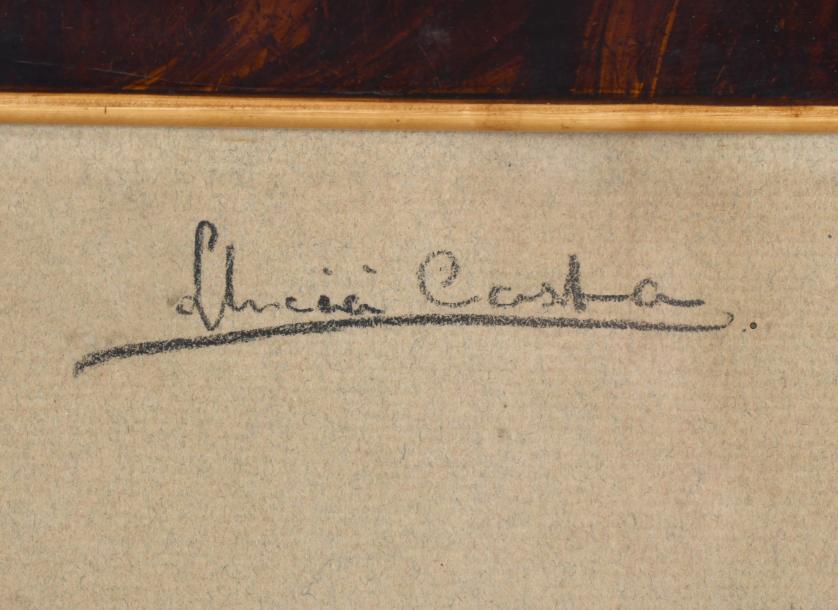 Lluciá Costa